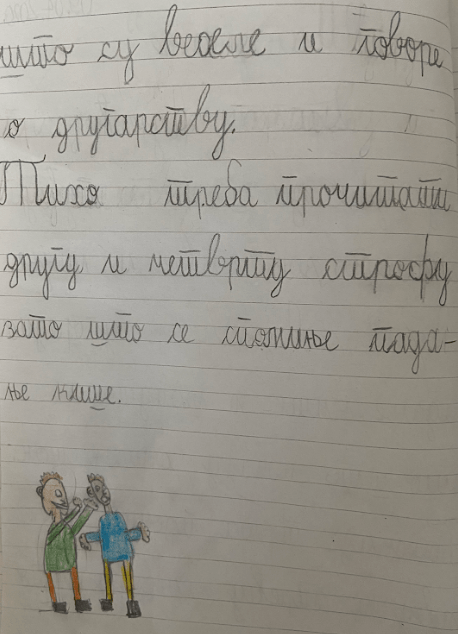 што су веселе и говоре
о другарству.
Тихо треба прочитати
другу и четврту строфу
зато што се спомиње пада-
ње кише.